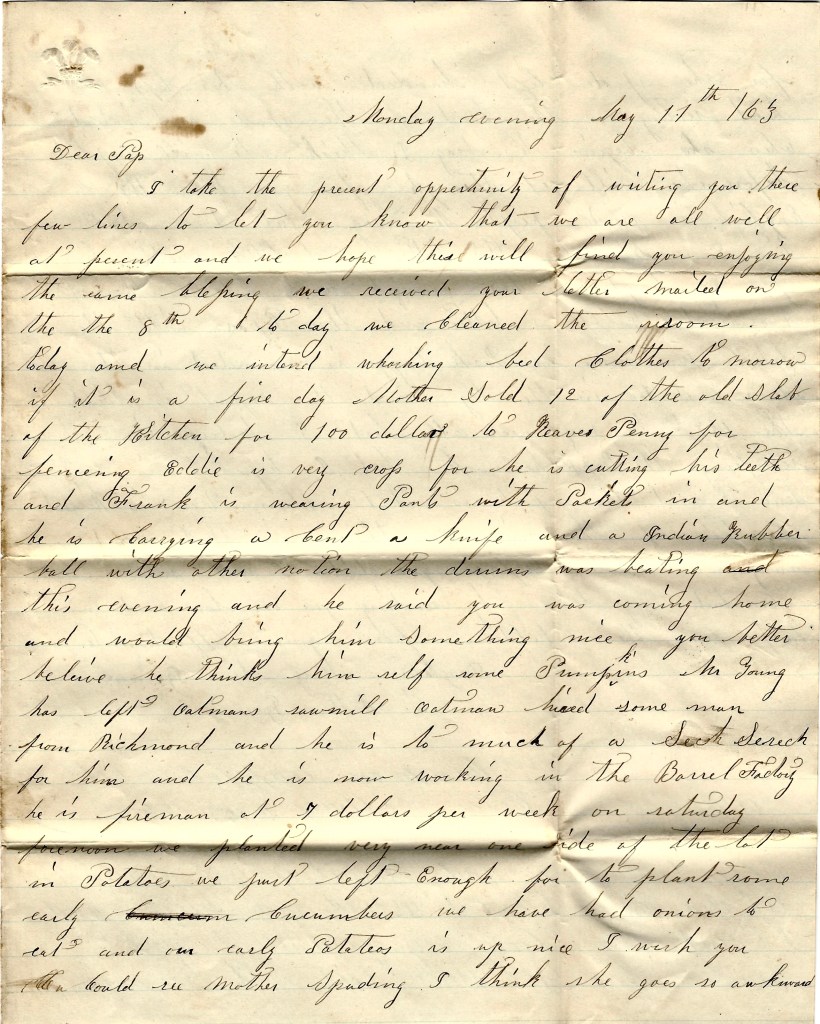 Monday evening May 11th /63
Dear Pap
I take the present oppertunity of writing you these
few lines to let you know that we are all well
at pesent and we hope this will find you enjoying
the same blessing we received your letter mailed on
the the 8th to day we Cleaned the room.
today and we intend whashing bed Clothes to morrow
if it is a fine day Mother Sold 12 of the old slab
of the Kitchen for 100 dollar to Reaves Penny for
fencering Eddie is very cross for he is cutting his teeth
and Frank is wearing Pants with Pockets in and
he is Carrying a Cent a knife and a Indian Rubber
ball with other notion the drums was beating and
this evening and he said you was coming home
and would bring him Something nice you better
beleive he thinks him self some Pumpkins Mr Young
has left Oatmans sawmill Oatman hired some man
from Richmond and he is to much of a Sesh Sesech
for him and he is now working in the Barrel Factory
he is fireman at 7 dollars per week on saturday
forenoon we planted very near one side of the lot
in Potatoes we just left Enough for to plant some
early Cucumbers we have had onions to
eat and our early Potatoes is up nice I wish you
Could see mother Spading I think she goes so awkward